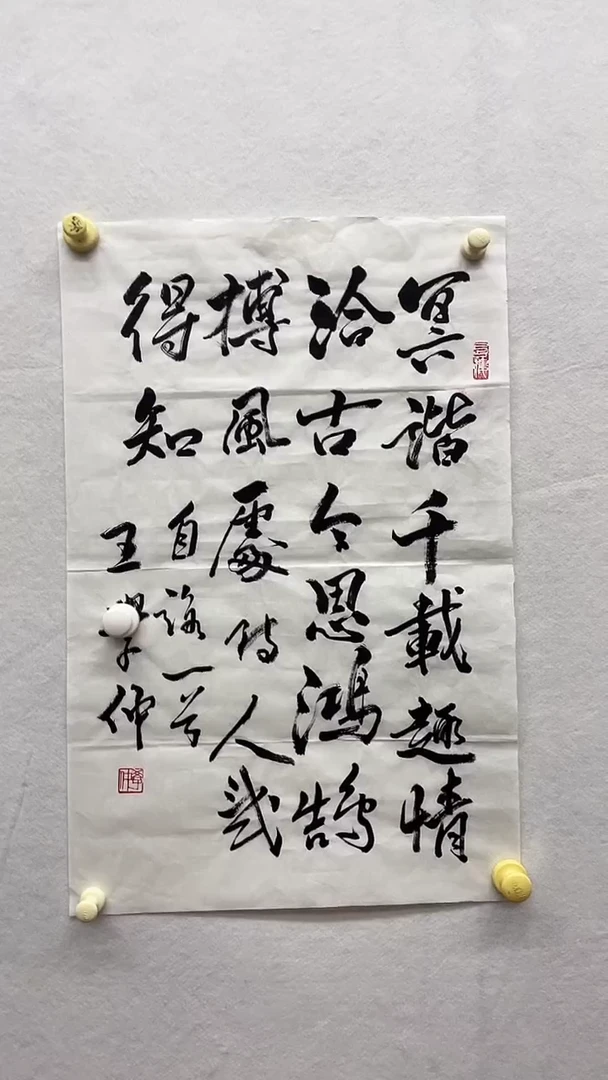 冥諧千載趣情
洽古今思鴻鵠
搏風處人或
得知
自詠一首
王學仲